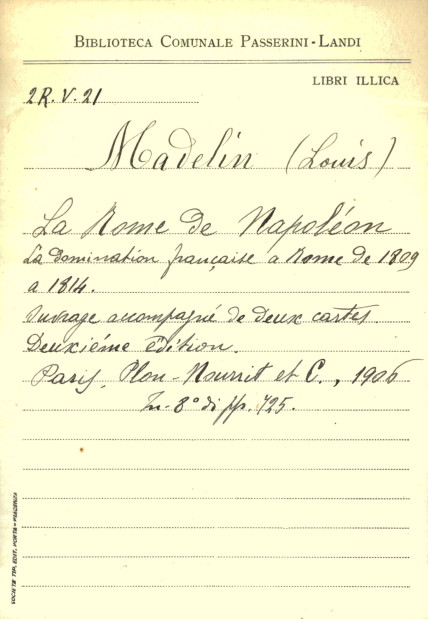 BIBLIOTECA COMUNALE PASSERINI-LANDI
LIBRI ILLICA
2R.V.21
Madelin (Louis)
La Rome de Napoléon
La domination française a Rome de 1809
a 1814.
Ouvrage accompagné de deux cartes
Deuxiéme édition.
Paris, Plon-Nourrit et C., 1906
In-8° di pp. 725.
SOCIETÀ TIP. EDIT. PORTA - PIACENZA